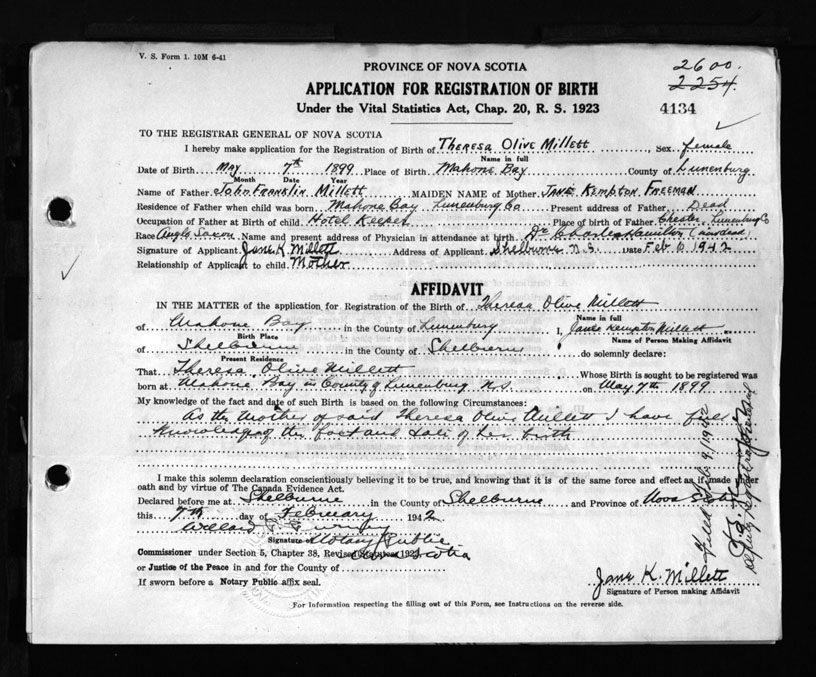 V. S. Form 1. 10M 6-41
PROVINCE OF NOVA SCOTIA
2600.
2254.
APPLICATION FOR REGISTRATION OF BIRTH
Under the Vital Statistics Act, Chap. 20, R. S. 1923
4134
TO THE REGISTRAR GENERAL OF NOVA SCOTIA
I hereby make application for the Registration of Birth of Theresa Olive Millett, Sex female
Name in full
Date of Birth May 7th 1899 Place of Birth Mahone Bay County of Lunenburg.
Month Date Year
Name of Father John Franklin Millett MAIDEN NAME of Mother Jane Kempton Freeman
Residence of Father when child was born Mahone Bay Lunenburg Co Present address of Father Dead
Occupation of Father at Birth of child Hotel Keeper Place of birth of Father Chester Lunenburg Co
Race Anglo Saxon Name and present address of Physician in attendance at birth Dr Charles Hamilton (now dead)
Signature of Applicant Jane K Millett Address of Applicant Shelburne N.S. Date Feb 6 1942
Relationship of Applicant to child Mother
AFFIDAVIT
IN THE MATTER of the application for Registration of the Birth of Theresa Olive Millett
Name in full
of Mahone Bay in the County of Lunenburg I, Jane Kempton Millett
Birth Place Name of Person Making Affidavit
of Shelburne in the County of Shelburne do solemnly declare:
Present Residence
That Theresa Olive Millett Whose Birth is sought to be registered was
born at Mahone Bay in County of Lunenburg N.S. on May 7th 1899
My knowledge of the fact and date of such Birth is based on the following Circumstances:
As the Mother of said Theresa Olive Millett I have full
knowledge of the fact and date of her birth
I make this solemn declaration conscientiously believing it to be true, and knowing that it is of the same force and effect as if made under
oath and by virtue of The Canada Evidence Act.
Declared before me at Shelburne in the County of Shelburne and Province of Nova Scotia
this 7th day of February 1942
Willard
Signature Notary Public
Commissioner under Section 5, Chapter 38, Revised Statutes 1923 Nova Scotia
or Justice of the Peace in and for the County of
If sworn before a Notary Public affix seal.
Jane K. Millett
Signature of Person making Affidavit
For Information respecting the filling out of this Form, see Instructions on the reverse side.
Filed Feb. 9/1942
Deputy Registrar General